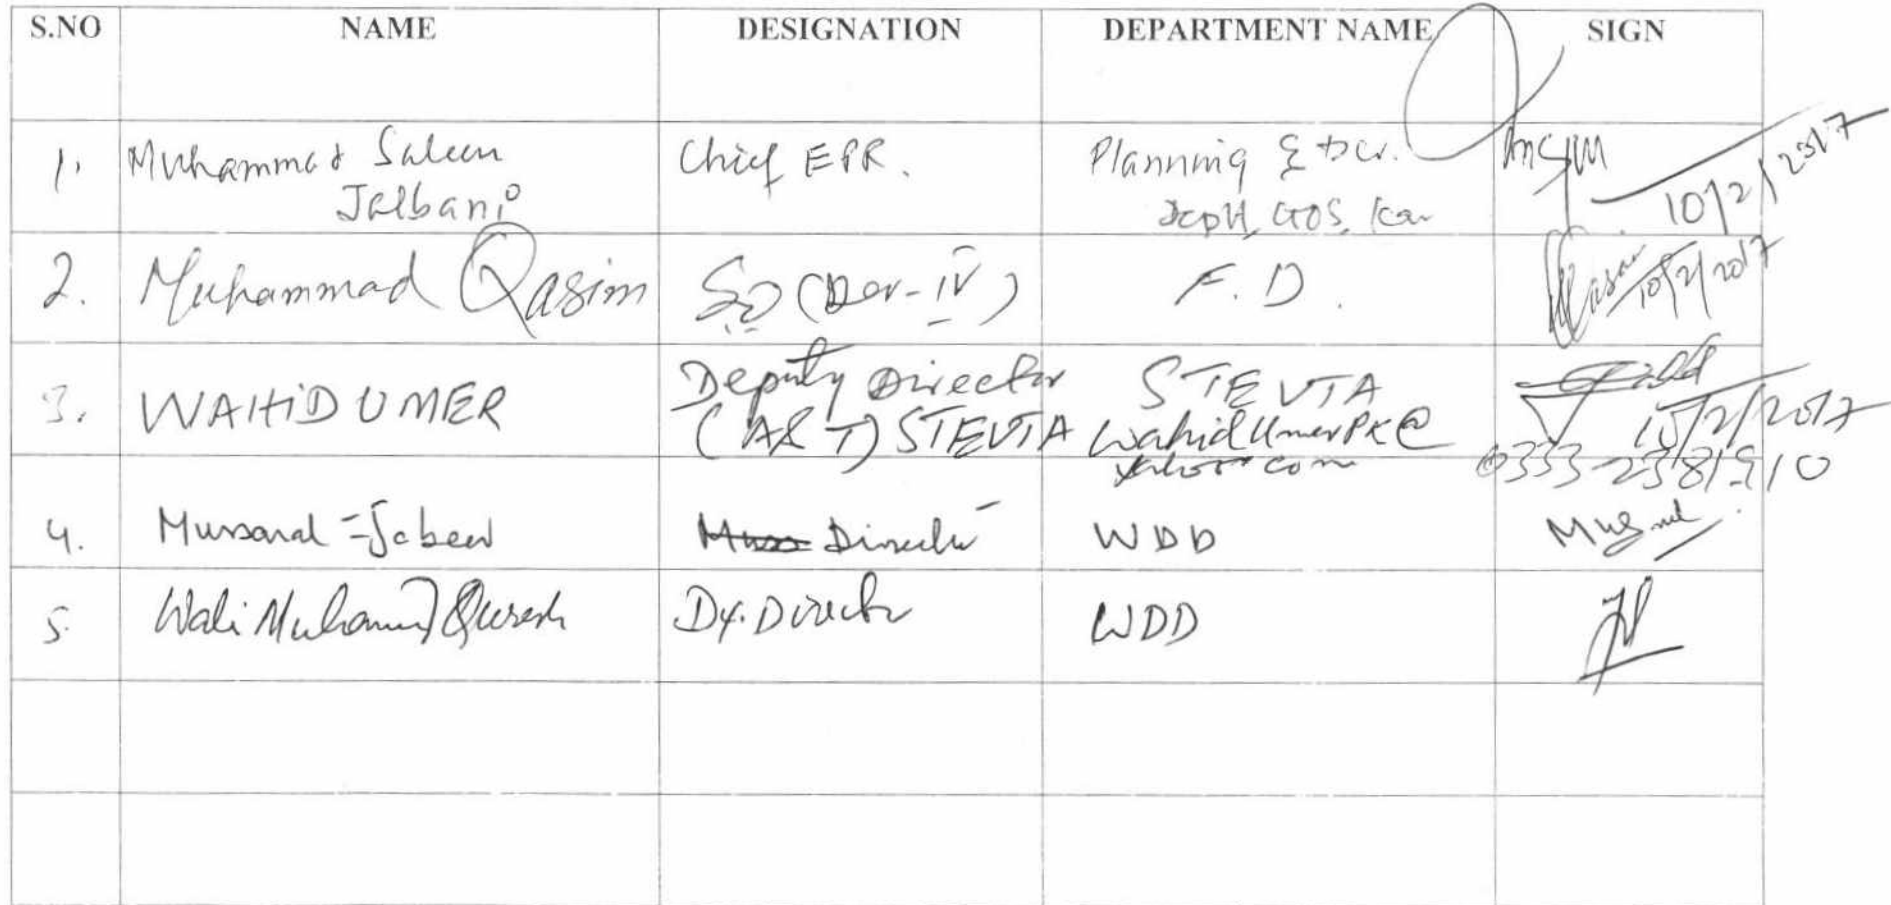 S.NO NAME DESIGNATION DEPARTMENT NAME SIGN
1. Muhammad Saleem Chief EPR. Planning & Dev.
Jalbani Deptt, GOS, Kar 10/2/2017
2. Muhammad Qasim S.O (Dev-IV) F.D. 10/2/2017
3. WAHID UMER Deputy Director STEVTA
(A&T) STEVTA WahidUmerPK@ 10/2/2017
yahoo com 0333-2381910
4. Mussarat Jabeen Director WDD
5. Wali Muhammad Qureshi Dy. Director WDD